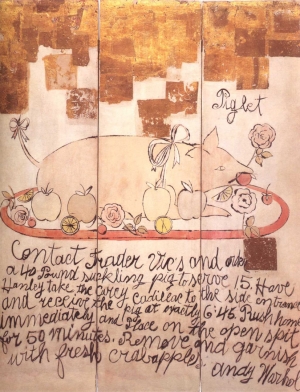 Piglet
Contact Trader Vic's and order
a 40 Pound suckling pig to serve 15. Have
Hanley take the Carey Cadillac to the side entrance
and receive the pig at exactly 6:45. Rush home
immediately and place on the open spit
for 50 minutes. Remove and garnish
with fresh crabapples.
Andy Warhol